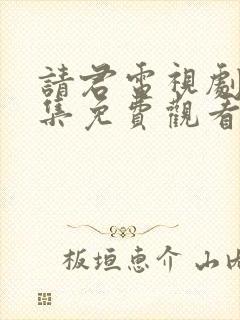 請君電視劇
集免費觀看
板垣恵介 山内